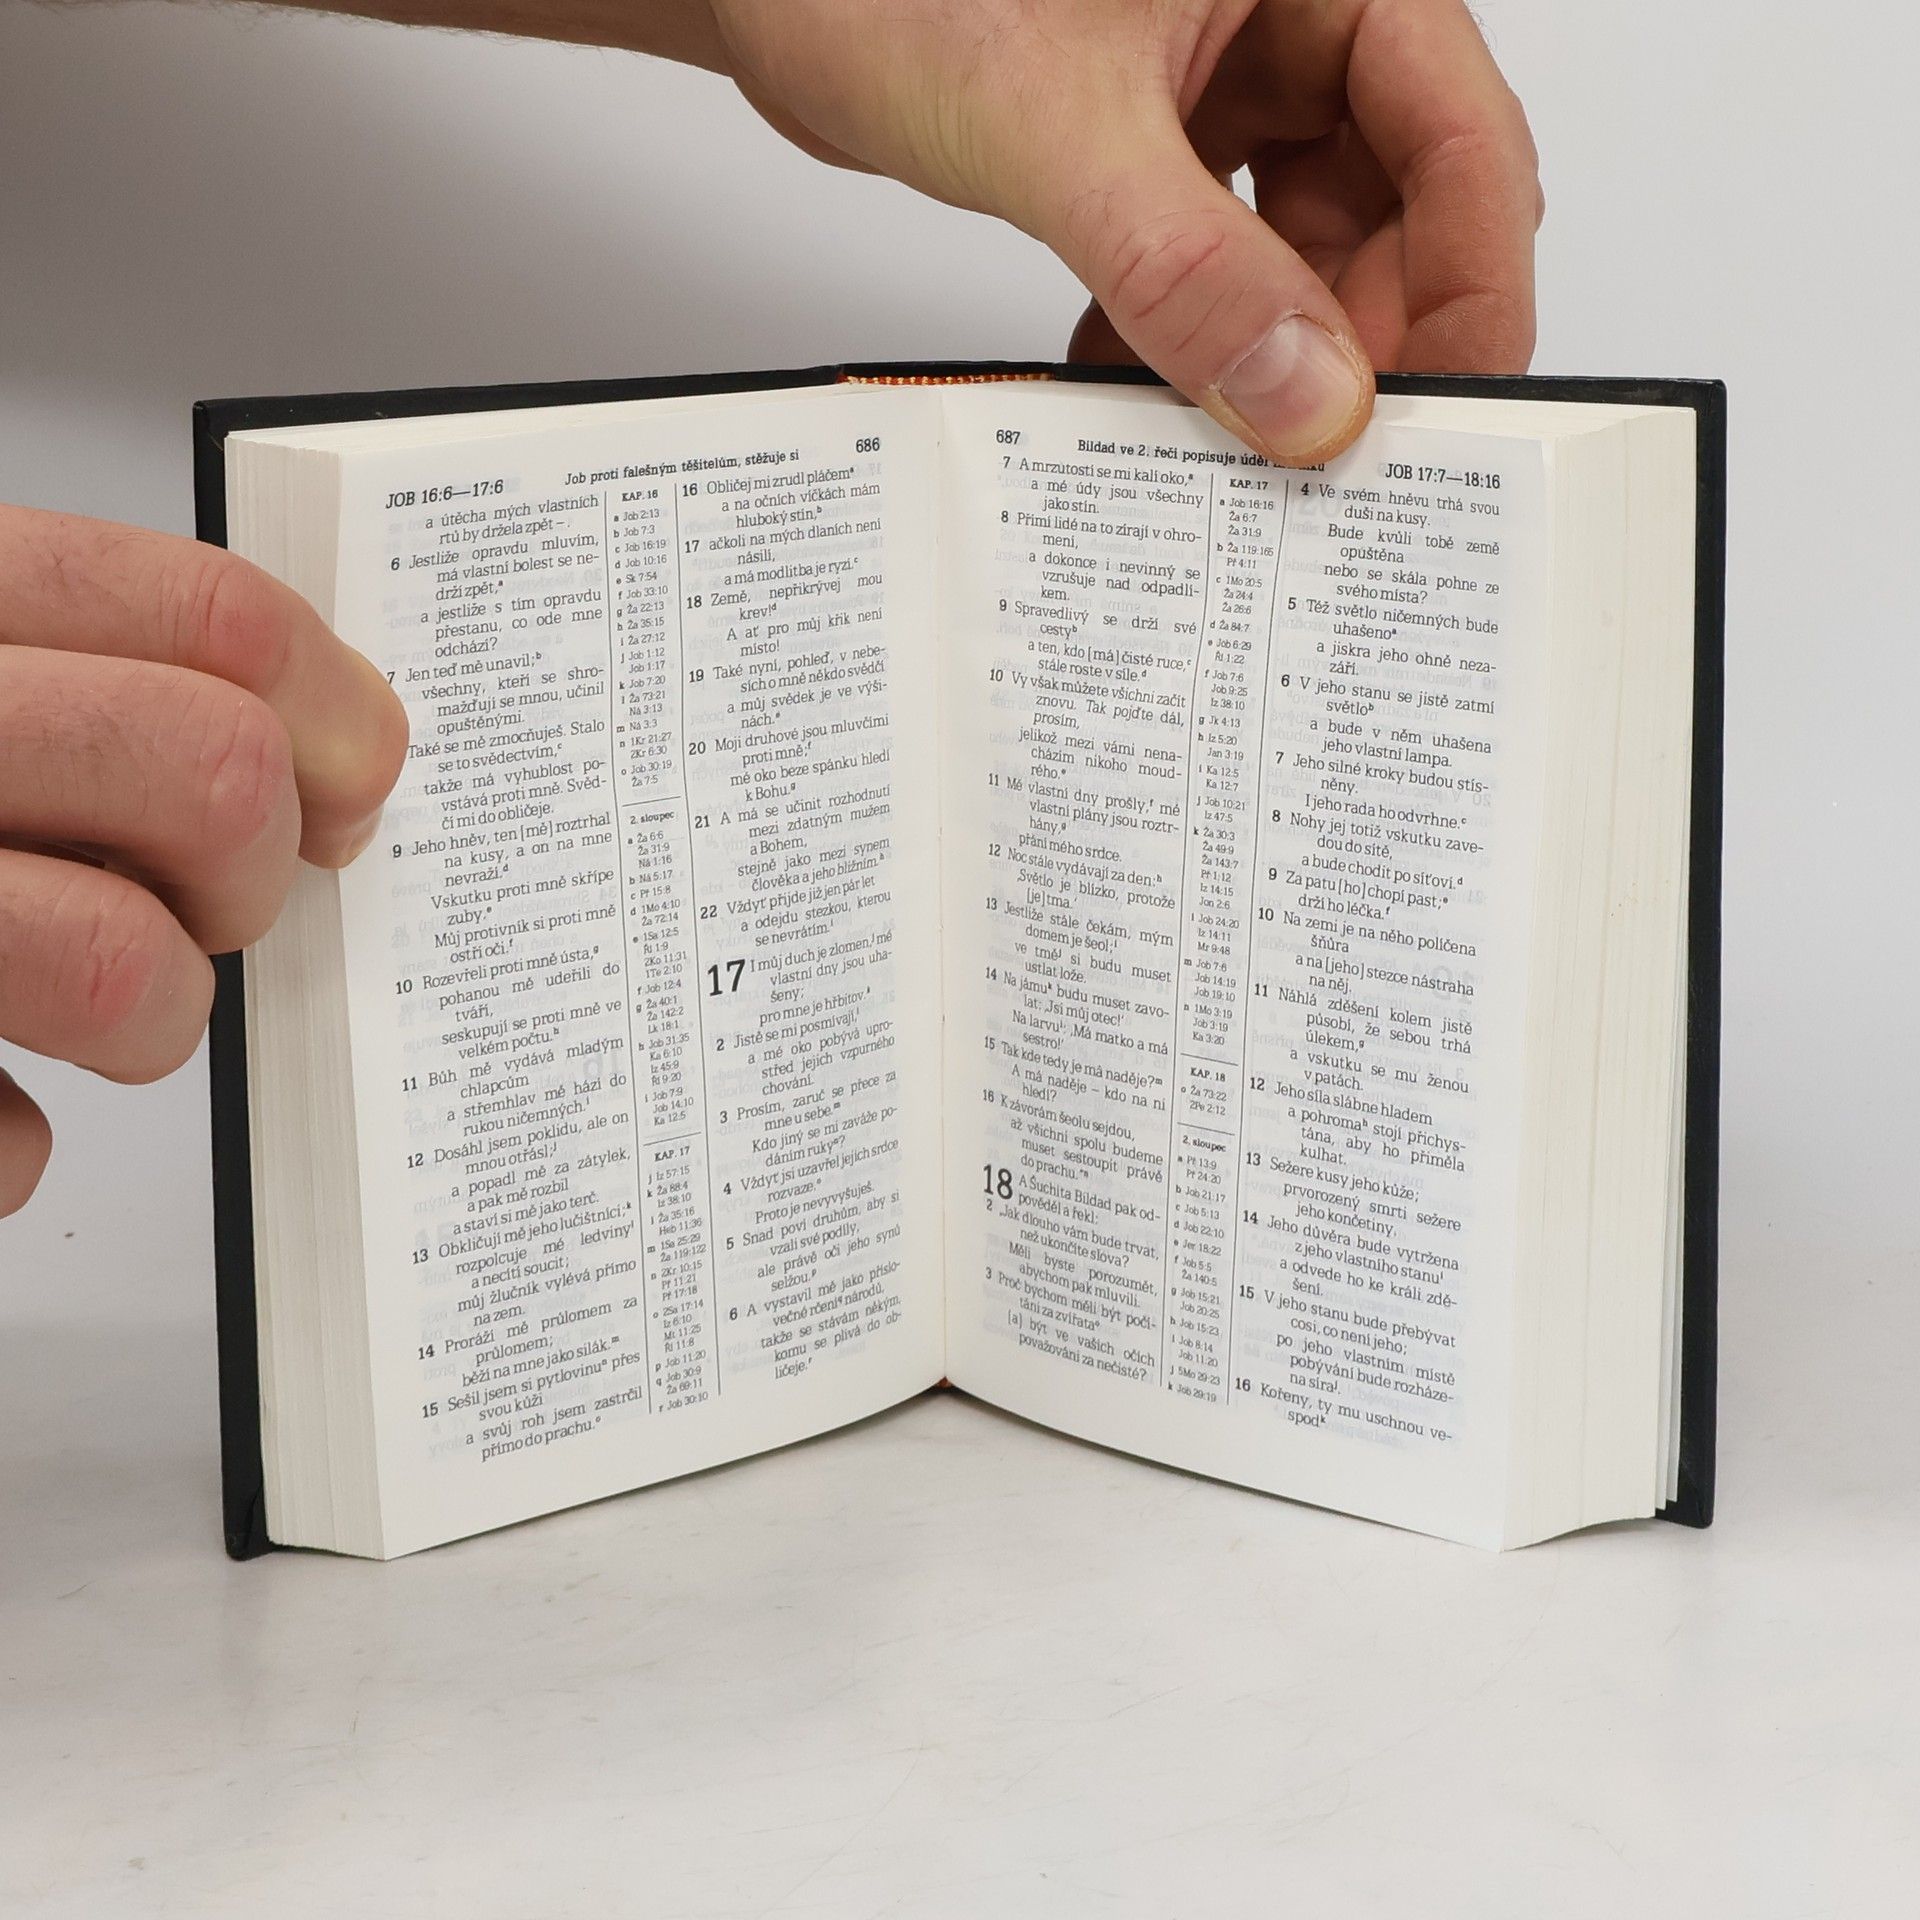 JOB 16:6—17:6
Job proti falešným těšitelům, stěžuje si
686
a útěcha mých vlastních
rtů by držela zpět – .
6 Jestliže opravdu mluvím,
má vlastní bolest se ne-
drží zpět,ª
a jestliže s tím opravdu
přestanu, co ode mne
odchází?
7 Jen teď mě unavil;ᵇ
všechny, kteří se shro-
mažďují se mnou, učinil
opuštěnými.
Také se mě zmocňuješ. Stalo
se to svědectvím,ᶜ
takže má vyhublost po-
vstává proti mně. Svěd-
čí mi do obličeje.
9 Jeho hněv, ten [mě] roztrhal
na kusy, a on na mne
nevraží.ᵈ
Vskutku proti mně skřípe
zuby.ᵉ
Můj protivník si proti mně
ostří oči.ᶠ
10 Rozevřeli proti mně ústa,ᵍ
pohanou mě udeřili do
tváří,
seskupují se proti mně ve
velkém počtu.ʰ
11 Bůh mě vydává mladým
chlapcům
a střemhlav mě hází do
rukou ničemných.ⁱ
12 Dosáhl jsem poklidu, ale on
mnou otřásl;ʲ
a popadl mě za zátylek,
a pak mě rozbil
a staví si mě jako terč.
13 Obkličují mě jeho lučištníci;ᵏ
rozpolcuje mé ledvinyˡ
a necítí soucit;
můj žlučník vylévá přímo
na zem.
14 Proráží mě průlomem za
průlomem;
běží na mne jako silák.ᵐ
15 Sešil jsem si pytlovinuⁿ přes
svou kůži
a svůj roh jsem zastrčil
přímo do prachu.ᵒ
KAP. 16
a Job 2:13
b Job 7:3
c Job 16:19
d Job 10:16
e Sk 7:54
f Job 33:10
g Ža 22:13
h Ža 35:15
i Ža 27:12
j Job 1:12
Job 1:17
k Job 7:20
l Ža 73:21
Ná 3:13
m Ná 3:3
n 1Kr 21:27
2Kr 6:30
o Job 30:19
Ža 7:5
2. sloupec
a Ža 6:6
Ža 31:9
Ná 1:16
b Ná 5:17
c Př 15:8
d 1Mo 4:10
Ža 72:14
e 1Sa 12:5
Ří 1:9
2Ko 11:31
1Te 2:10
f Job 12:4
g Ža 40:1
Ža 142:2
Lk 18:1
h Job 31:35
Ka 6:10
Iz 45:9
Ří 9:20
i Job 7:9
Job 14:10
Ka 12:5
KAP. 17
j Iz 57:15
k Ža 88:4
Iz 38:10
l Ža 35:16
Heb 11:36
m 1Sa 25:29
Ža 119:122
n 2Kr 10:15
Př 11:21
Př 17:18
o 2Sa 17:14
Iz 6:10
Mt 11:25
Ří 11:8
p Job 11:20
q Job 30:9
Ža 69:11
r Job 30:10
16 Obličej mi zrudl pláčemª
a na očních víčkách mám
hluboký stín,ᵇ
17 ačkoli na mých dlaních není
násilí,
a má modlitba je ryzí.ᶜ
18 Země, nepřikrývej mou
krev!ᵈ
A ať pro můj křik není
místo!
19 Také nyní, pohleď, v nebe-
sích o mně někdo svědčí
a můj svědek je ve výši-
nách.ᵉ
20 Moji druhové jsou mluvčími
proti mně;ᶠ
mé oko beze spánku hledí
k Bohu.ᵍ
21 A má se učinit rozhodnutí
mezi zdatným mužem
a Bohem,
stejně jako mezi synem
člověka a jeho bližním.ʰ
22 Vždyť přijde již jen pár let
a odejdu stezkou, kterou
se nevrátím.ⁱ
17 I můj duch je zlomen,ʲ mé
vlastní dny jsou uha-
šeny;
pro mne je hřbitov.ᵏ
2 Jistě se mi posmívají,ˡ
a mé oko pobývá upro-
střed jejich vzpurného
chování.
3 Prosím, zaruč se přece za
mne u sebe.ᵐ
Kdo jiný se mi zaváže po-
dáním rukyⁿ?
4 Vždyť jsi uzavřel jejich srdce
rozvaze.ᵒ
Proto je nevyvyšuješ.
5 Snad poví druhům, aby si
vzali své podíly,
ale právě oči jeho synů
selžou.ᵖ
6 A vystavil mě jako příslo-
večné rčeníq národů,
takže se stávám někým,
komu se plivá do ob-
ličeje.ʳ
687
Bildad ve 2. řeči popisuje úděl
JOB 17:7—18:16
7 A mrzutostí se mi kalí oko,ª
a mé údy jsou všechny
jako stín.
8 Přímí lidé na to zírají v ohro-
mení,
a dokonce i nevinný se
vzrušuje nad odpadlí-
kem.
9 Spravedlivý se drží své
cestyᵇ
a ten, kdo [má] čisté ruce,ᶜ
stále roste v síle.ᵈ
10 Vy však můžete všichni začít
znovu. Tak pojďte dál,
prosím,
jelikož mezi vámi nena-
cházím nikoho moud-
rého.ᵉ
11 Mé vlastní dny prošly,ᶠ mé
vlastní plány jsou roztr-
hány,ᵍ
přání mého srdce.
12 Noc stále vydávají za den:ʰ
‚Světlo je blízko, protože
[je] tma.‘
13 Jestliže stále čekám, mým
domem je šeol;ⁱ
ve tměʲ si budu muset
ustlat lože.
14 Na jámuᵏ budu muset zavo-
lat: ‚Jsi můj otec!‘
Na larvuˡ: ‚Má matko a má
sestro!‘
15 Tak kde tedy je má naděje?ᵐ
A má naděje – kdo na ni
hledí?
16 K závorám šeolu sejdou,
až všichni spolu budeme
muset sestoupit právě
do prachu.“ⁿ
18 A Šuchita Bildad pak od-
pověděl a řekl:
2 „Jak dlouho vám bude trvat,
než ukončíte slova?
Měli byste porozumět,
abychom pak mluvili.
3 Proč bychom měli být počí-
táni za zvířataᵒ
[a] být ve vašich očích
považováni za nečisté?
KAP. 17
a Job 16:16
Ža 6:7
Ža 31:9
b Ža 119:165
Př 4:11
c 1Mo 20:5
Ža 24:4
Ža 26:6
d Ža 84:7
e Job 6:29
Ří 1:22
f Job 7:6
Job 9:25
Iz 38:10
g Jk 4:13
h Iz 5:20
Jan 3:19
i Ka 12:5
Ka 12:7
j Job 10:21
Iz 47:5
k Ža 30:3
Ža 49:9
Ža 143:7
Př 1:12
Iz 14:15
Jon 2:6
l Job 24:20
Iz 14:11
Mr 9:48
m Job 7:6
Job 14:19
Job 19:10
n 1Mo 3:19
Job 3:19
Ka 3:20
KAP. 18
o Ža 73:22
2Pe 2:12
2. sloupec
a Př 13:9
Př 24:20
b Job 21:17
c Job 5:13
d Job 22:10
e Jer 18:22
f Job 5:5
Ža 140:5
g Job 15:21
Job 20:25
h Job 15:23
i Job 8:14
Job 11:20
j 5Mo 29:23
k Job 29:19
4 Ve svém hněvu trhá svou
duši na kusy.
Bude kvůli tobě země
opuštěna
nebo se skála pohne ze
svého místa?
5 Též světlo ničemných bude
uhašenoª
a jiskra jeho ohně neza-
září.
6 V jeho stanu se jistě zatmí
světloᵇ
a bude v něm uhašena
jeho vlastní lampa.
7 Jeho silné kroky budou stís-
něny.
I jeho rada ho odvrhne.ᶜ
8 Nohy jej totiž vskutku zave-
dou do sítě,
a bude chodit po síťoví.ᵈ
9 Za patu [ho] chopí past;ᵉ
drží ho léčka.ᶠ
10 Na zemi je na něho políčena
šňůra
a na [jeho] stezce nástraha
na něj.
11 Náhlá zděšení kolem jistě
působí, že sebou trhá
úlekem,ᵍ
a vskutku se mu ženou
v patách.
12 Jeho síla slábne hladem
a pohromaʰ stojí přichys-
tána, aby ho přiměla
kulhat.
13 Sežere kusy jeho kůže;
prvorozený smrti sežere
jeho končetiny.
14 Jeho důvěra bude vytržena
z jeho vlastního stanuⁱ
a odvede ho ke králi zdě-
šení.
15 V jeho stanu bude přebývat
cosi, co není jeho;
po jeho vlastním místě
pobývání bude rozháze-
na síraʲ.
16 Kořeny, ty mu uschnou ve-
spodᵏ